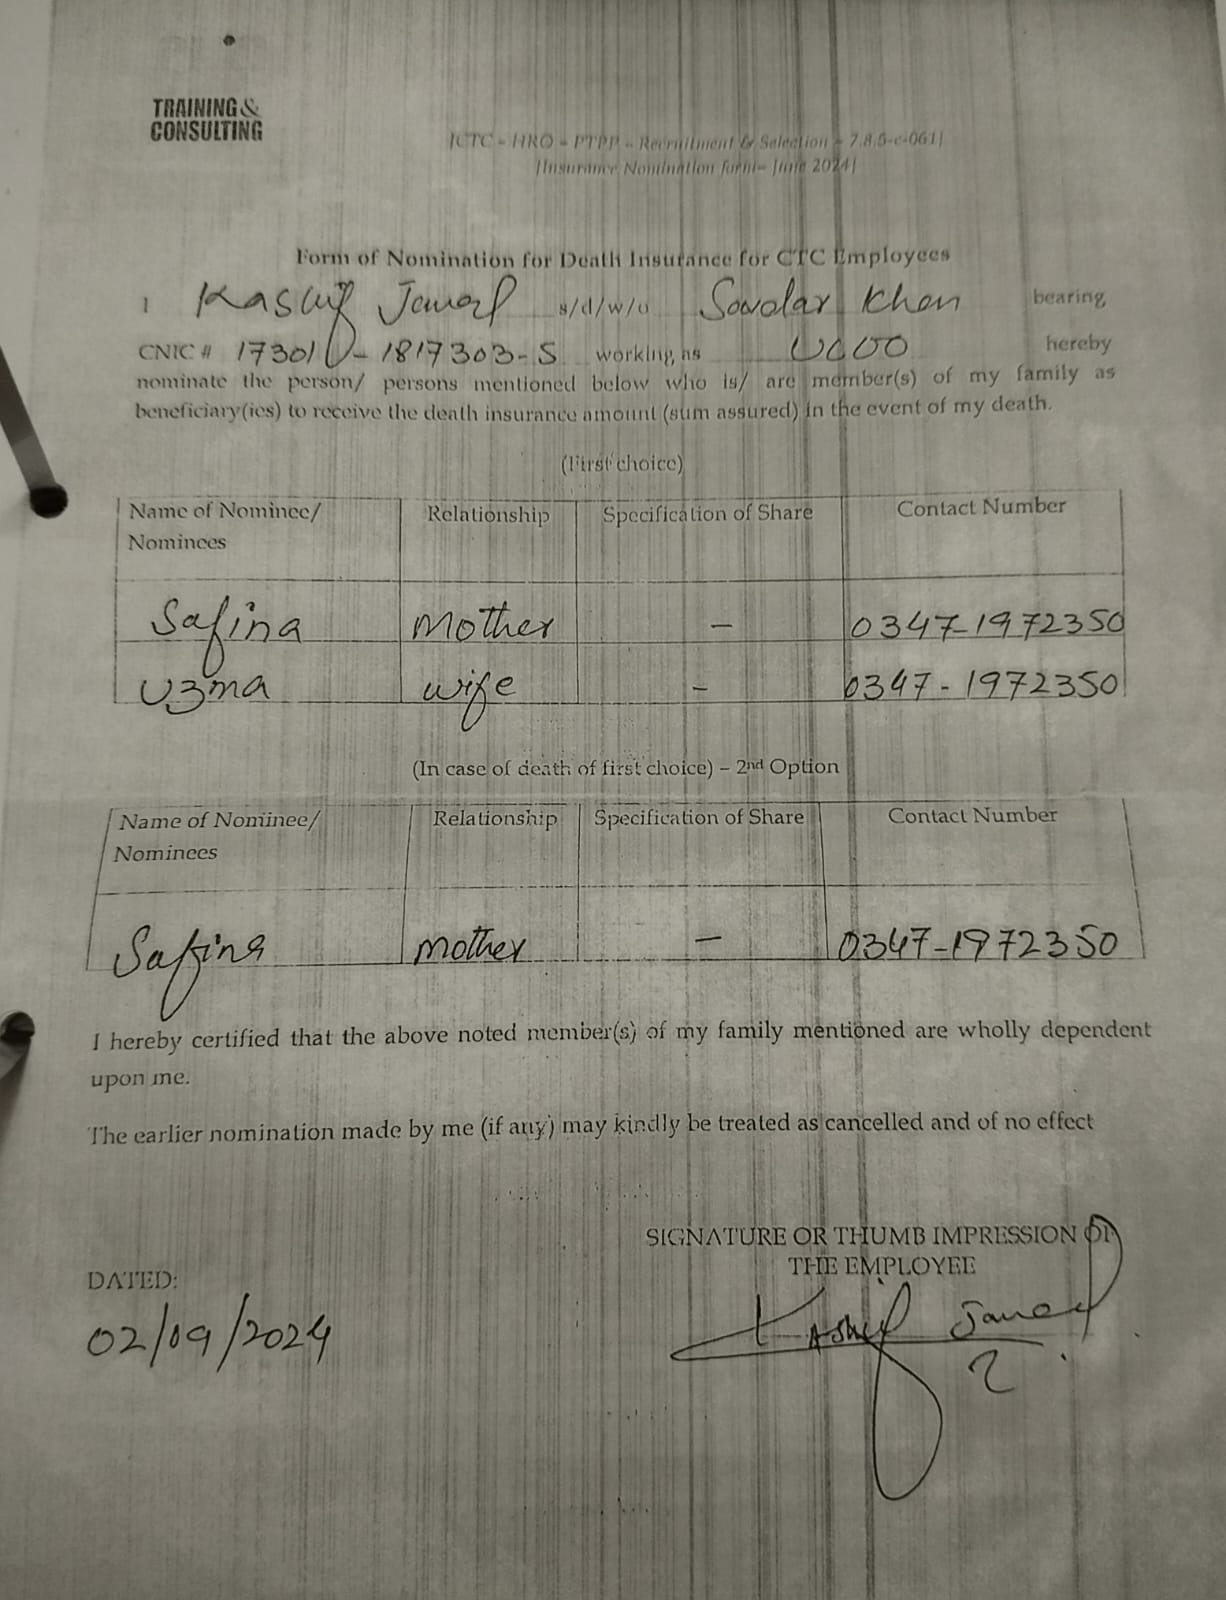 TRAINING &
CONSULTING
[CTC - HRO - PTPP - Recruitment & Selection - 7.8.5-c-061]
[Insurance Nomination form- June 2024]
Form of Nomination for Death Insurance for CTC Employees
I Kashif Jamal s/d/w/o Sardar Khan bearing
CNIC # 17301-1817303-5 working as UCOO hereby
nominate the person/ persons mentioned below who is/ are member(s) of my family as
beneficiary(ies) to receive the death insurance amount (sum assured) in the event of my death.
(First choice)
Name of Nominee/ Relationship Specification of Share Contact Number
Nominees
Safina Mother - 0347-1972350
Uzma wife - 0347-1972350
(In case of death of first choice) – 2nd Option
Name of Nominee/ Relationship Specification of Share Contact Number
Nominees
Safina mother - 0347-1972350
I hereby certified that the above noted member(s) of my family mentioned are wholly dependent
upon me.
The earlier nomination made by me (if any) may kindly be treated as cancelled and of no effect
SIGNATURE OR THUMB IMPRESSION OF
THE EMPLOYEE
DATED:
02/09/2024
Kashif Jamal